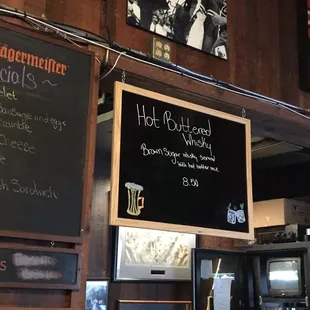 Jägermeister
cials ~
let
Sausage and eggs
cramble
ch Sandwich
Hot Buttered
Whisky
Brown Sugar whisky served
with hot butter mix
8.50